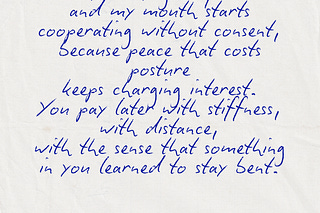 and my mouth starts
cooperating without consent,
because peace that costs
posture
keeps charging interest.
You pay later with stiffness,
with distance,
with the sense that something
in you learned to stay bent.